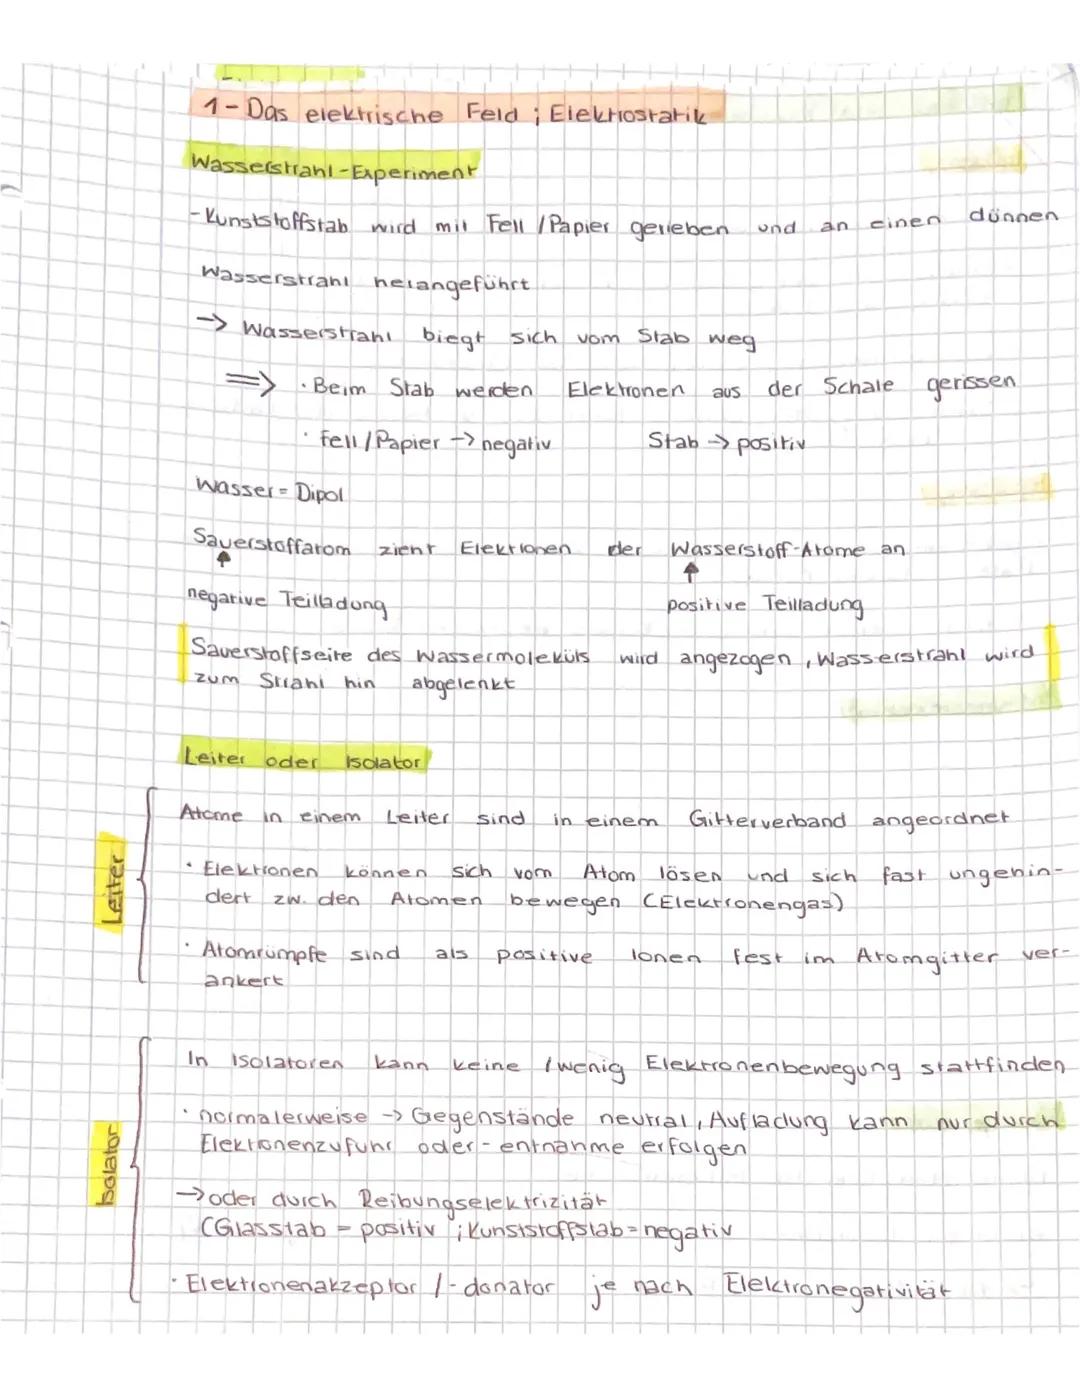 1- Das elektrische Feld ; Elektrostatik
Wasserstrahl-Experiment
- Kunststoffstab wird mit Fell / Papier gerieben und an einen dünnen
Wasserstrahl herangeführt
-> Wasserstrahl biegt sich vom Stab weg
=> · Beim Stab werden Elektronen aus der Schale gerissen
· Fell / Papier -> negativ Stab -> positiv
Wasser = Dipol
Sauerstoffatom zieht Elektronen der Wasserstoff-Atome an
↑ ↑
negative Teilladung positive Teilladung
Sauerstoffseite des Wassermoleküls wird angezogen, Wasserstrahl wird
zum Strahl hin abgelenkt
Leiter oder Isolator
Leiter
Atome in einem Leiter sind in einem Gitterverband angeordnet
· Elektronen können sich vom Atom lösen und sich fast ungehin-
dert zw. den Atomen bewegen (Elektronengas)
· Atomrümpfe sind als positive Ionen fest im Atomgitter ver-
ankert
Isolator
In Isolatoren kann keine / wenig Elektronenbewegung stattfinden
· normalerweise -> Gegenstände neutral, Aufladung kann nur durch
Elektronenzufuhr oder -entnahme erfolgen
-> oder durch Reibungselektrizität
(Glasstab = positiv ; Kunststoffstab = negativ
· Elektronenakzeptor / -donator je nach Elektronegativität